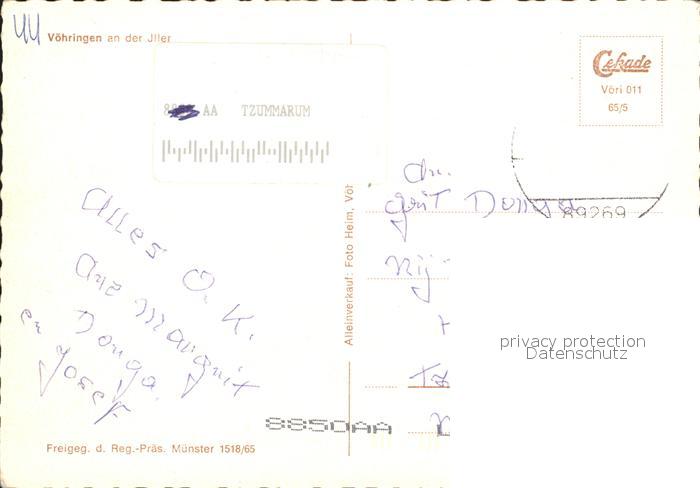 44
Vöhringen an der Jller
Cekade
Vöri 011
65/5
AA TZUMMARUM
89269
Alleinverkauf: Foto Heim, Vöh
Alles O.K.
Margrit
Donga
en Josef
An.
Donga
privacy protection
Datenschutz
8850AA
Freigeg. d. Reg.-Präs. Münster 1518/65